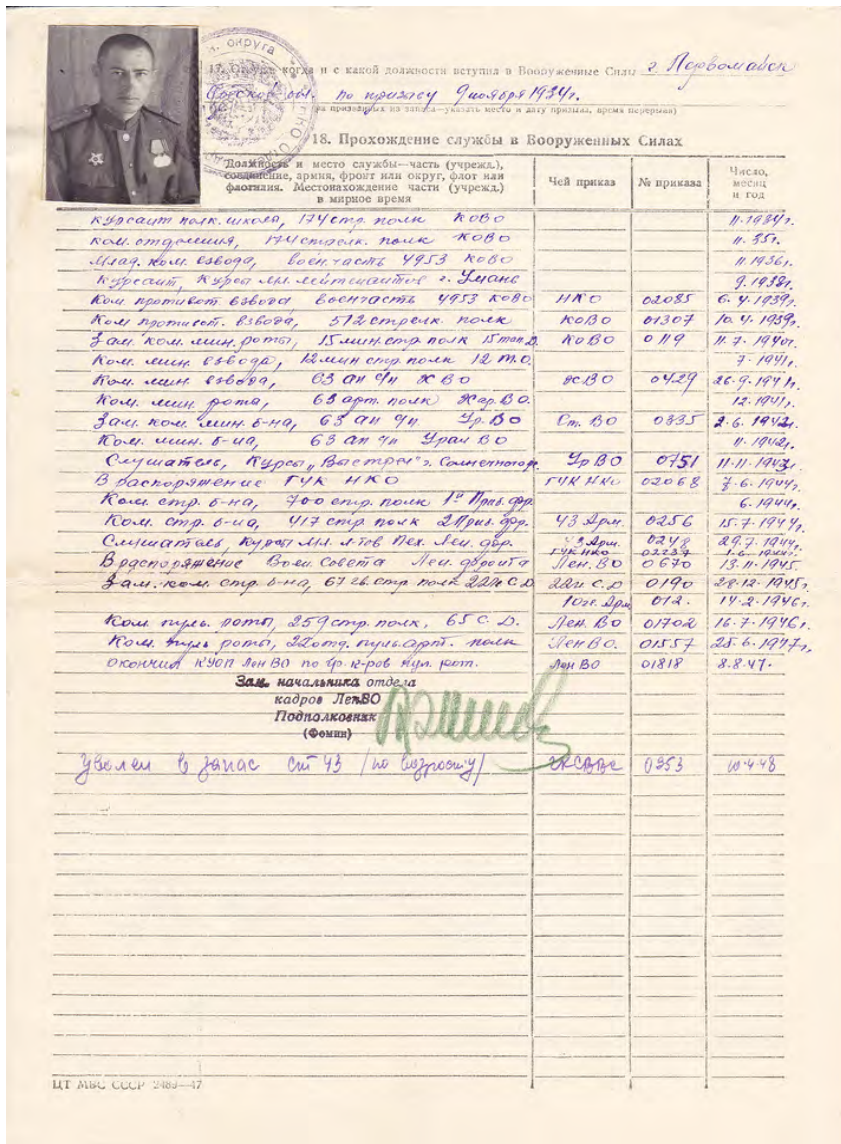 округа
17. когда и с какой должности вступил в Вооруженные Силы г. Первомайск
Одесской обл. по призыву 9 ноября 1934 г.
призванных из запаса—указать место и дату призыва, время перерыва)
18. Прохождение службы в Вооруженных Силах
Должность и место службы—часть (учрежд.), соединение, армия, фронт или округ, флот или флотилия. Местонахождение части (учрежд.) в мирное время | Чей приказ | № приказа | Число, месяц и год
курсант полк. школа, 174 стр. полк КОВО 11.1934г.
ком. отделения, 174 стрелк. полк КОВО 11.35г.
Млад. ком. взвода, воен. часть 4953 КОВО 11.1936г.
Курсант, Курсы мл. лейтенантов г. Умань 9.1938г.
Ком. противот. взвода воен часть 4953 КОВО НКО 02085 6.4.1939г.
Ком противот. взвода, 512 стрелк. полк КОВО 01307 10.4.1939г.
Зам. ком. мин. роты, 15 мин стр полк 15 КОВО 0119 11.7.1940г.
Ком. мин. взвода, 12 мин стр. полк 12 7.1941г.
Ком. мин. взвода, 63 ап ХВО ХВО 0429 26.9.1941г.
Ком. мин. рота, 63 арт. полк Хар. ВО. 12.1941г.
Зам. ком. мин. б-на, 63 ап Ур. ВО Ст. ВО 0335 2.6.1942г.
Ком. мин. б-на, 63 ап Урал ВО 11.1942г.
Слушатель, Курсы „Выстрел" г. Солнечногор. УрВО 0751 11.11.1943г.
В распоряжение ГУК НКО ГУК НКО 02068 7.6.1944г.
Ком. стр. б-на, 700 стр. полк 1й Приб. фр. 6.1944г.
Ком. стр. б-на, 417 стр полк 2 Приб. фр. 43 Арм. 0256 15.7.1944г.
Слушатель, Курсы мл. л-тов Лен. фр. 43 Арм. 0248 29.7.1944г.
ГУК НКО
В распоряжение Воен. Совета Лен. фронта Лен. ВО 0670 13.11.1945
Зам. ком. стр. б-на, 67 гв. стр полк 22 гв С.Д. 22 гв С.Д 0190 28.12.1945г.
10 гв. Арм 012. 14.2.1946г.
Ком. пуль. роты, 259 стр. полк, 65 С.Д. Лен. ВО 01702 16.7.1946г.
Ком. пуль роты, 22 отд. пуль. арт. полк Лен ВО. 01557 25.6.1947г.
окончил КУОП Лен ВО по гр. к-ров пул. рот. Лен ВО 01818 8.8.47.
Зам. начальника отдела
кадров ЛенВО
Подполковник
(Фомин)
Уволен в запас ст 43 /по возрасту/ 0353 10.4.48
ЦТ МВС СССР 2489—47